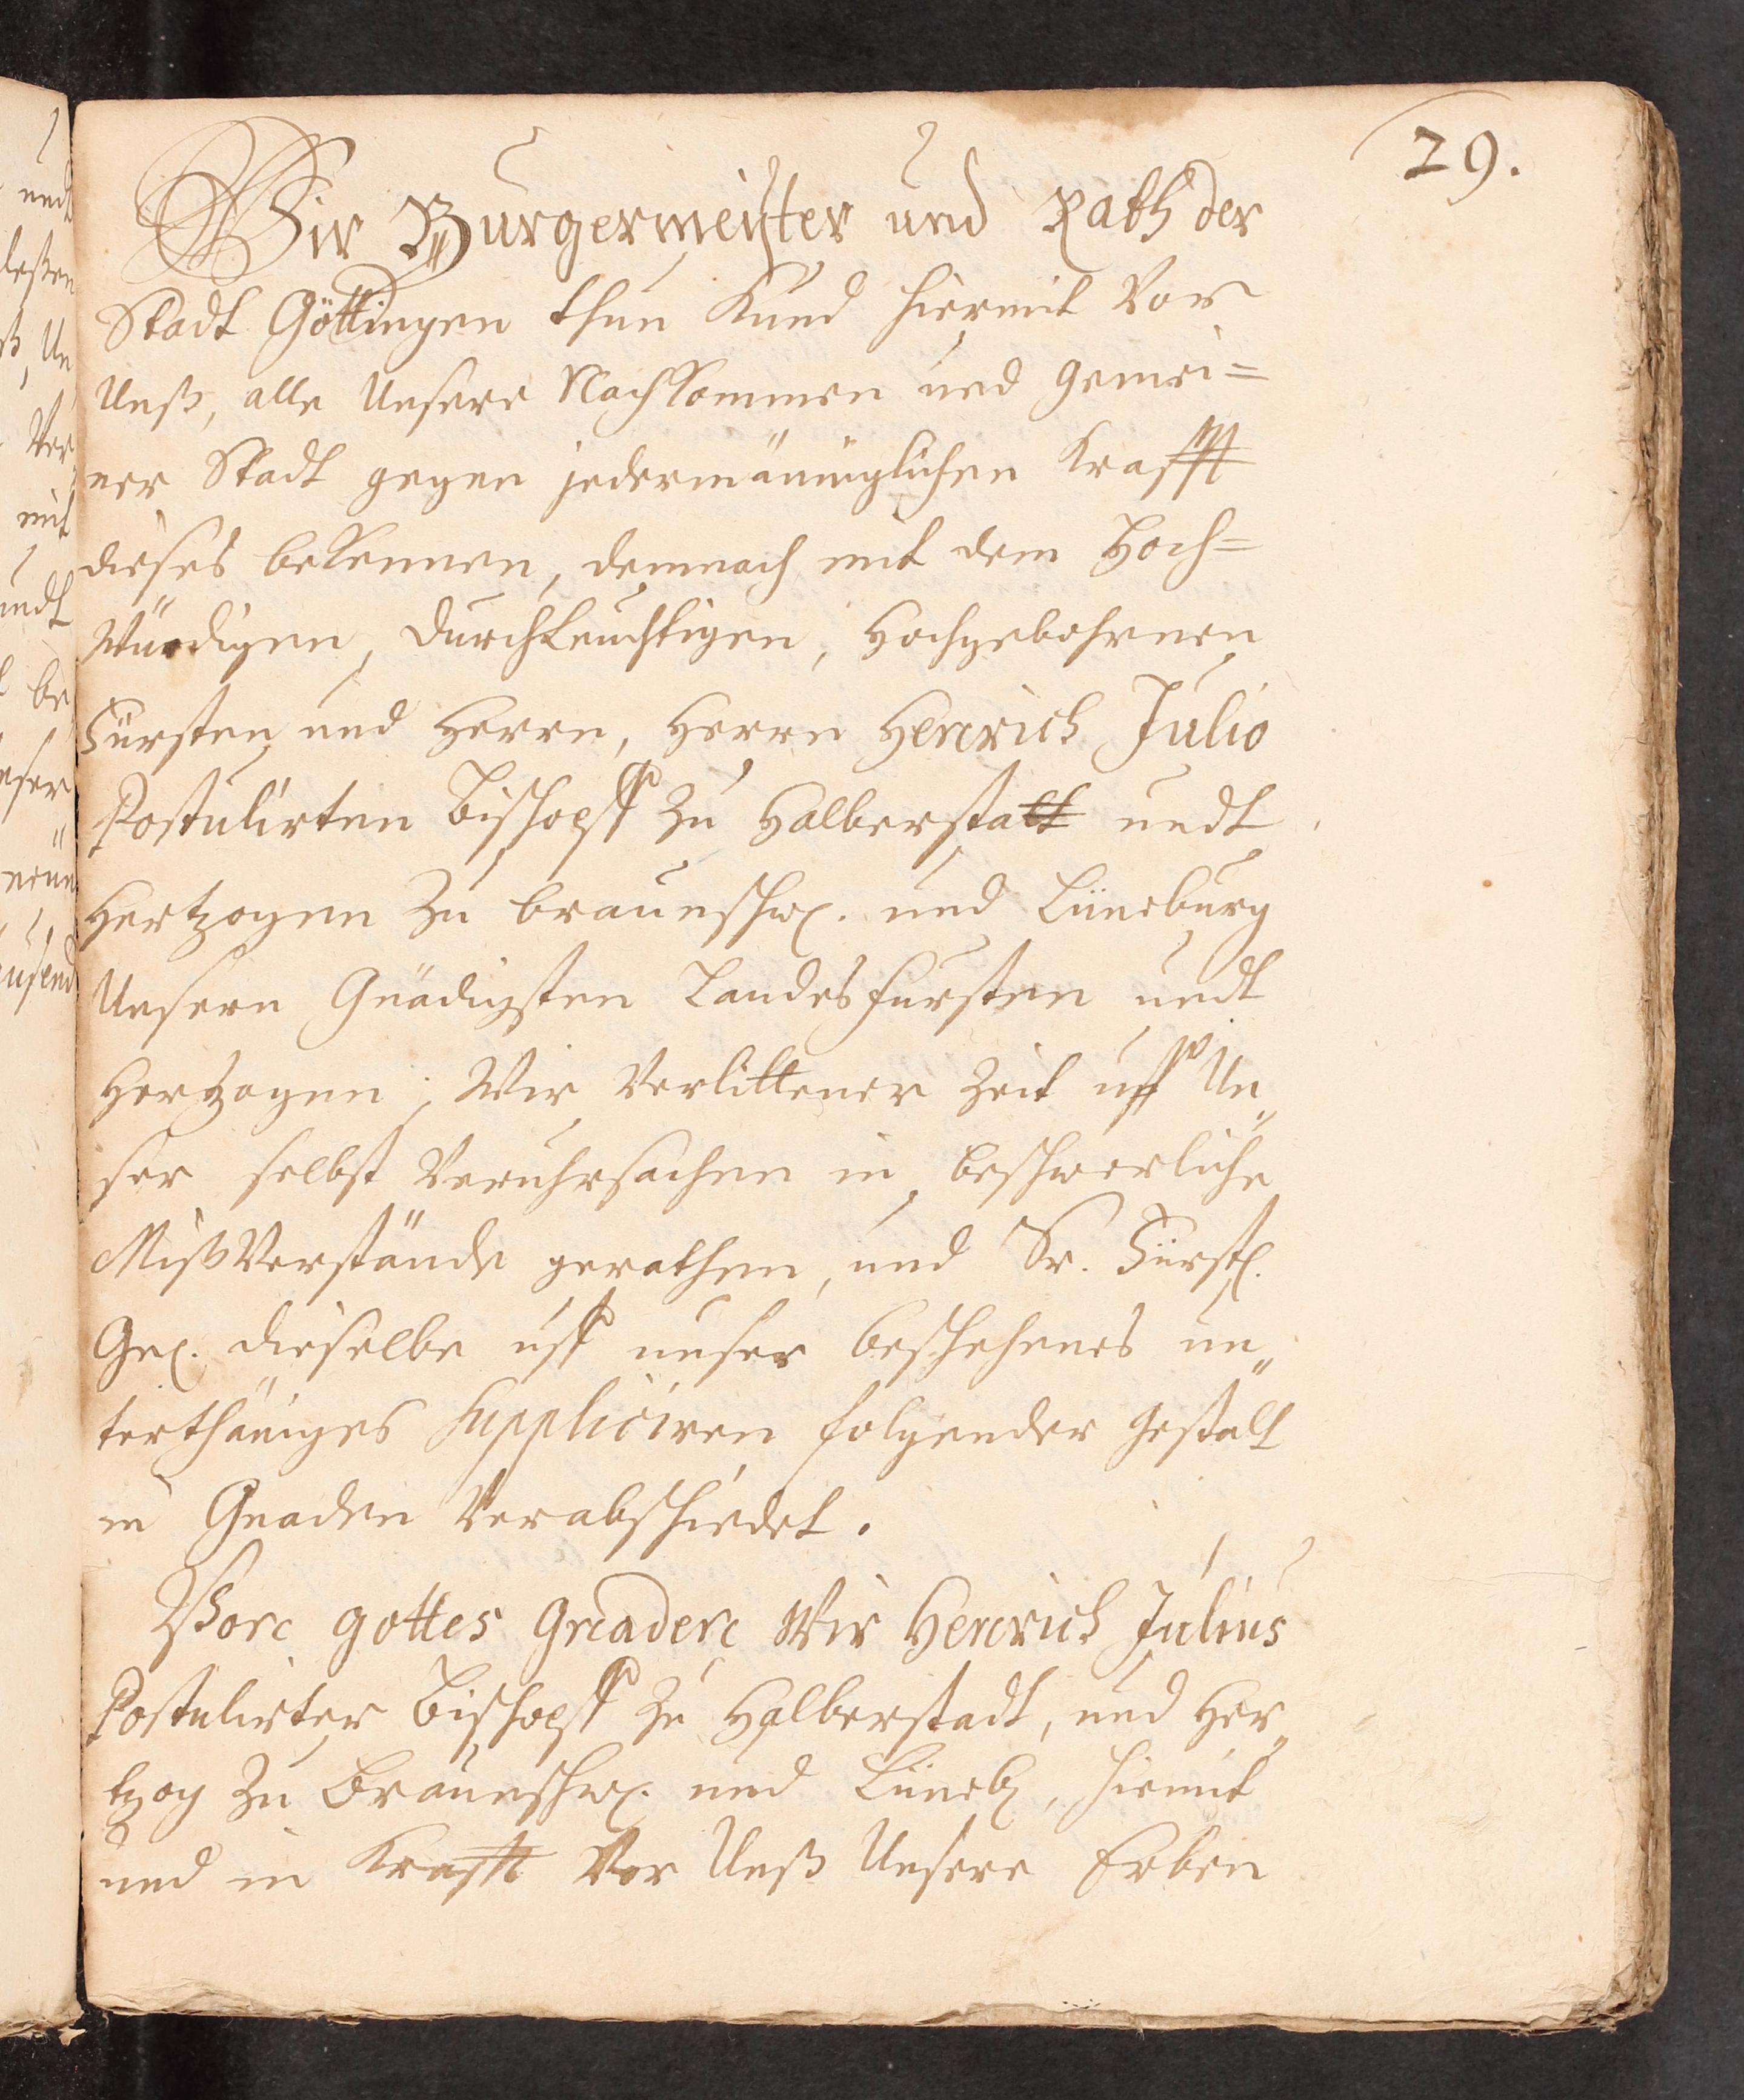 29.
Wir Burgermeister und Rath der
Stadt Göttingen thun Kund hiermit Vor
Unß, alle Unsere Nachkommen und gemei=
ner Stadt gegen jedermänniglichen Krafft
dieses bekennen, demnach mit dem Hoch=
Würdigen, Durchleuchtigen, Hochgebohrnen
Fürsten und Herrn, Herrn Henrich Julio
Postulirten Bischoff zu Halberstatt undt
Hertzogen zu braunschw. und Lüneburg
Unsern Gnädigsten Landesfürsten undt
Hertzogen; Wir Verlittener Zeit uff Un„
ser selbst Veruhrsachen in beschwerliche
MißVerstände gerathen, und Sr. Fürstl.
Gn. dieselbe uff unser beschehenes un„
terthäniges suppliciren folgender gestalt
in Gnaden Verabschiedet.
Von gottes gnaden Wir Henrich Julius
Postulirter Bischoff zu Halberstadt, und Her„
tzog zu Braunschw. und Lüneb, hiemit
und in Krafft Vor Unß Unsere Erben